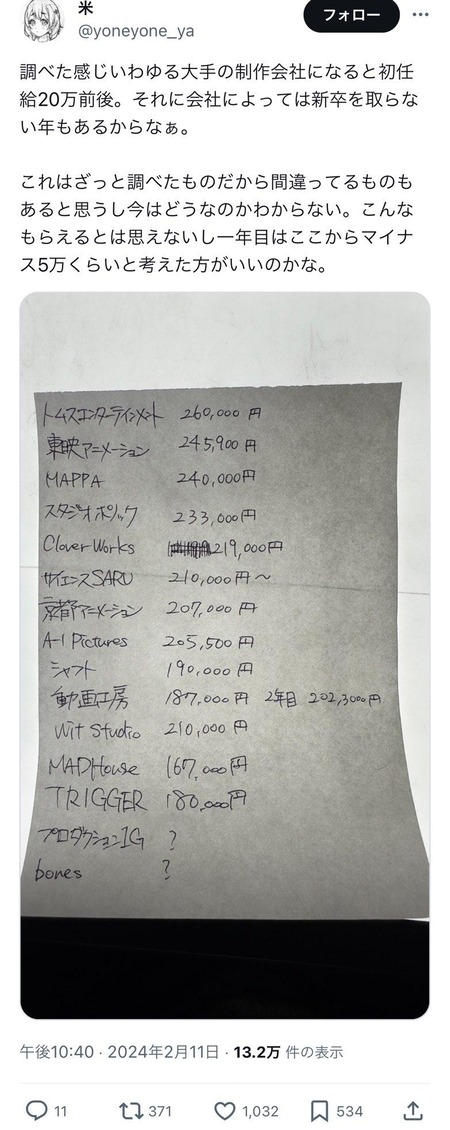 米
@yoneyone_ya
フォロー
調べた感じいわゆる大手の制作会社になると初任
給20万前後。それに会社によっては新卒を取らな
い年もあるからなぁ。
これはざっと調べたものだから間違ってるものも
あると思うし今はどうなのかわからない。こんな
もらえるとは思えないし一年目はここからマイナ
ス5万くらいと考えた方がいいのかな。
トムスエンターテインメント 260,000 円
東映アニメーション 245,900 円
MAPPA 240,000円
スタジオポリック 233,000円
CloverWorks 219,000円
サイエンスSARU 210,000円～
京都アニメーション 207,000 円
A-1 Pictures 205,500 円
シャフト 190,000 円
動画工房 187,000 円 2年目 202,3000円
Wit Studio 210,000 円
MADHouse 167,000円
TRIGGER 180,000円
プロダクションIG ?
bones ?
午後10:40 · 2024年2月11日 · 13.2万 件の表示
11 371 1,032 534